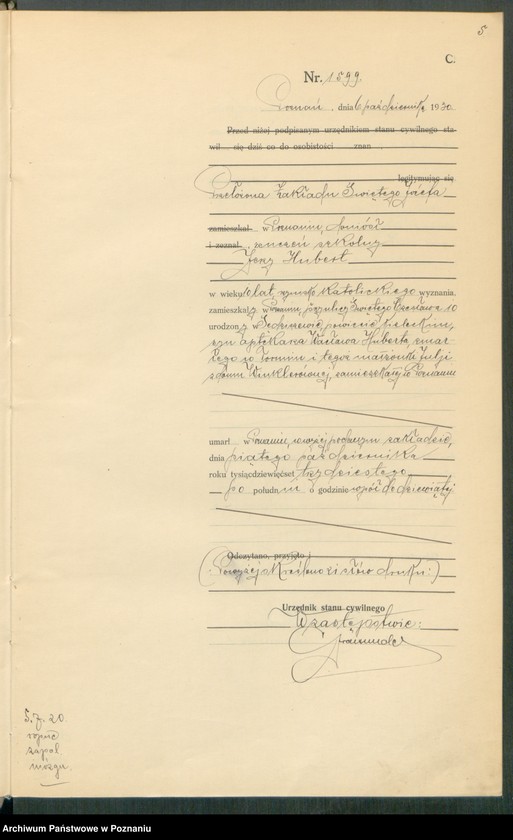 5
C.
Nr. 1599.
Poznań, dnia 6 października 1930
Przed niżej podpisanym urzędnikiem stanu cywilnego sta-
wił się dziś co do osobistości znan
legitymując się
Przełożona Zakładu Świętego Józefa
zamieszkał w Poznaniu, doniósł
i zeznał, że uczeń szkolny
Jerzy Hubert
w wieku 10 lat, rzymsko katolickiego wyznania,
zamieszkały w Poznaniu, przy ulicy Świętego Czesława 10
urodzony w powiecie kieleckim,
syn aptekarza Wacława Huberta, zmar-
łego w Toruniu i tegoż małżonki Julji
z domu Winklerównej, zamieszkałej w Poznaniu
umarł w Poznaniu, w wyżej podanym zakładzie,
dnia piątego października
roku tysiącdziewięćset trzydziestego
po południu o godzinie wpół do dziewiątej
Odczytano, przyjęto i
(: Powyżej skreślono słów druku :)
Urzędnik stanu cywilnego
W zastępstwie:
5. 7. 20.
ropne
zapal
mózgu
Archiwum Państwowe w Poznaniu